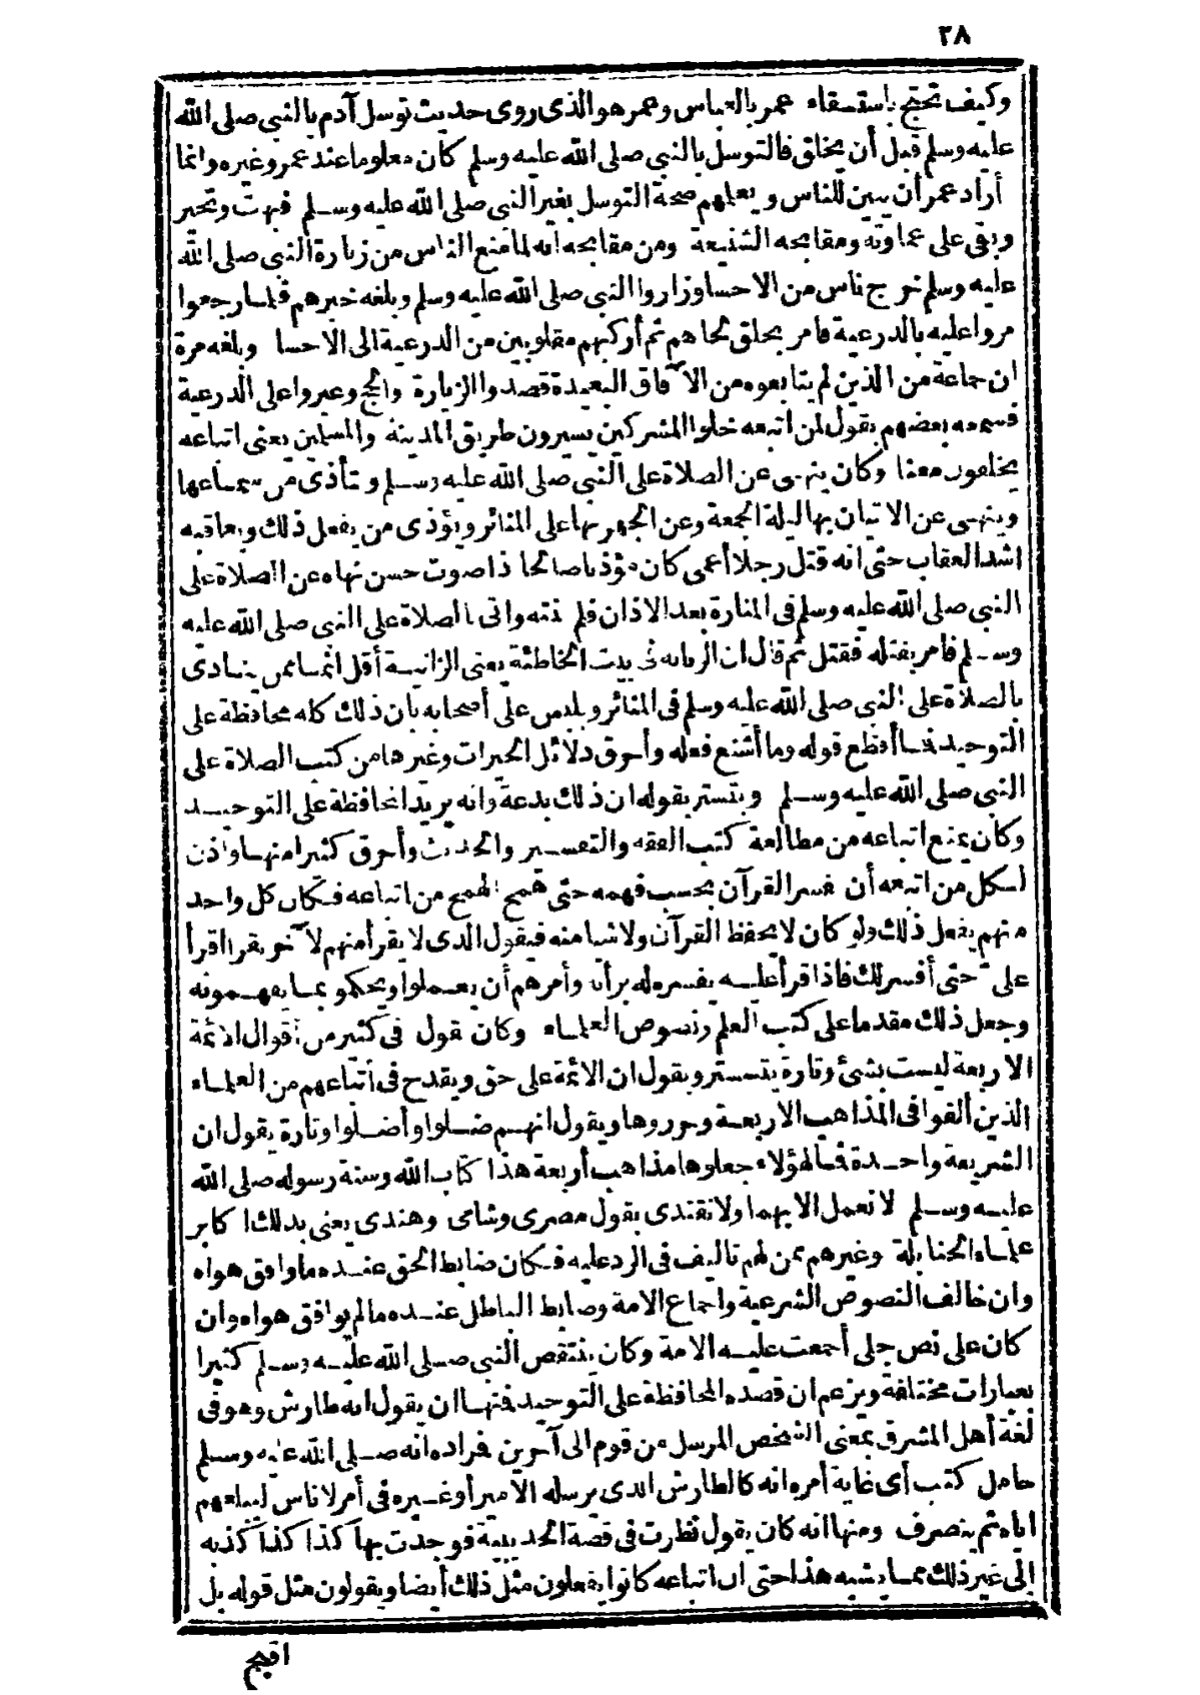 ٣٨
وكيف تحتج باستسقاء عمر بالعباس وعمر هو الذى روى حديث توسل آدم بالنبى صلى الله
عليه وسلم قبل أن يخلق فالتوسل بالنبى صلى الله عليه وسلم كان معلوما عند عمر وغيره وانما
أراد عمر أن يبين للناس ويعلمهم صحة التوسل بغير النبى صلى الله عليه وسلم فبهت وتحير
وبقى على عماوته ومقابحه الشنيعة ومن مقابحه أنه لما منع الناس من زيارة النبى صلى الله
عليه وسلم خرج ناس من الاحسا وزاروا النبى صلى الله عليه وسلم وبلغه خبرهم فلما رجعوا
مروا عليه بالدرعية فامر بحلق لحاهم ثم أركبهم مقلوبين من الدرعية الى الاحسا وبلغه مرة
ان جماعة من الذين لم يتابعوه من الآفاق البعيدة قصدوا الزيارة والحج وعبروا على الدرعية
فسمعه بعضهم يقول لمن اتبعه خلوا المشركين يسيرون طريق المدينة والمسلمين يعنى اتباعه
يخلفون معنا وكان ينهى عن الصلاة على النبى صلى الله عليه وسلم ويتأذى من سماعها
وينهى عن الاتيان بها ليلة الجمعة وعن الجهر بها على المنائر ويؤذى من يفعل ذلك ويعاقبه
اشد العقاب حتى انه قتل رجلا أعمى كان مؤذنا صالحا ذا صوت حسن نهاه عن الصلاة على
النبى صلى الله عليه وسلم فى المنارة بعد الاذان فلم ينته واتى بالصلاة على النبى صلى الله عليه
وسلم فامر بقتله فقتل ثم قال ان الربابة فى بيت الخاطئة يعنى الزانية أقل اثما ممن ينادى
بالصلاة على النبى صلى الله عليه وسلم فى المنائر ويلبس على أصحابه بان ذلك كله محافظة على
التوحيد فما أفظع قوله وما أشنع فعله وأحرق دلائل الخيرات وغيرها من كتب الصلاة على
النبى صلى الله عليه وسلم ويتستر بقوله ان ذلك بدعة وانه يريد المحافظة على التوحيد
وكان يمنع اتباعه من مطالعة كتب الفقه والتفسير والحديث وأحرق كثيرا منها واذن
لكل من اتبعه أن يفسر القرآن بحسب فهمه حتى همج الهمج من اتباعه فكان كل واحد
منهم يفعل ذلك ولو كان لا يحفظ القرآن ولا شيا منه فيقول الذى لا يقرأ منهم لآخر يقرا اقرأ
على حتى أفسر لك فاذا قرأ عليه يفسره له برأيه وأمرهم أن يعملوا ويحكموا بما يفهمونه
وجعل ذلك مقدما على كتب العلم ونصوص العلماء وكان يقول فى كثير من أقوال الائمة
الاربعة ليست بشئ وتارة يتستر ويقول ان الائمة على حق ويقدح فى أتباعهم من العلماء
الذين ألفوا فى المذاهب الاربعة وحرروها ويقول انهم ضلوا وأضلوا وتارة يقول ان
الشريعة واحدة فما لهؤلاء جعلوها مذاهب أربعة هذا كتاب الله وسنة رسوله صلى الله
عليه وسلم لا نعمل الا بهما ولا نقتدى بقول مصرى وشامى وهندى يعنى بذلك اكابر
علماء الحنابلة وغيرهم ممن لهم تاليف فى الرد عليه فكان ضابط الحق عنده ما وافق هواه
وان خالف النصوص الشرعية واجماع الامة وضابط الباطل عنده مالم يوافق هواه وان
كان على نص جلى أجمعت عليه الامة وكان ينتقص النبى صلى الله عليه وسلم كثيرا
بعبارات مختلفة ويزعم ان قصده المحافظة على التوحيد فمنها ان يقول انه طارش وهو فى
لغة أهل المشرق بمعنى الشخص المرسل من قوم الى آخرين فمراده انه صلى الله عليه وسلم
حامل كتب أى غاية أمره انه كالطارش الذى يرسله الامير أو غيره فى أمر لاناس ليبلغهم
اياه ثم ينصرف ومنها انه كان يقول نظرت فى قصة الحديبية فوجدت بها كذا كذا كذبه
الى غير ذلك مما يشبه هذا حتى ان اتباعه كانوا يفعلون مثل ذلك أيضا ويقولون مثل قوله بل
اقبح